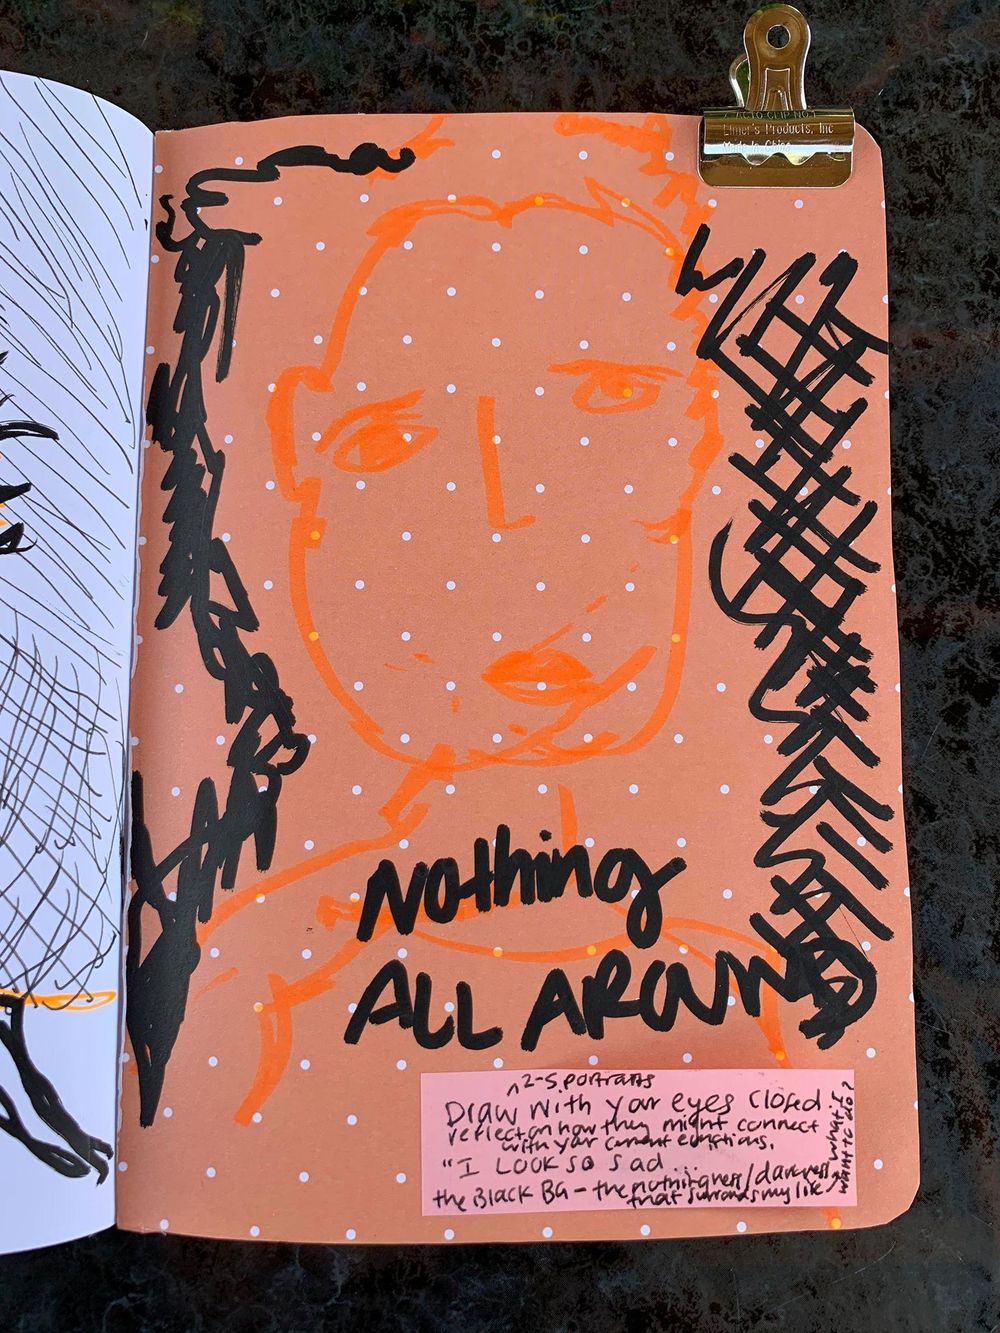 ACTO CLIP NO 1
Elmer's Products, Inc
Made in China
Nothing
ALL AROUND
^ 2-5 portraits
Draw with your eyes closed
reflect on how they might connect
with your current emotions.
"I LOOK SO sad...
the Black BG - the nothingness/darkness
that surrounds my life
what I
want to do?